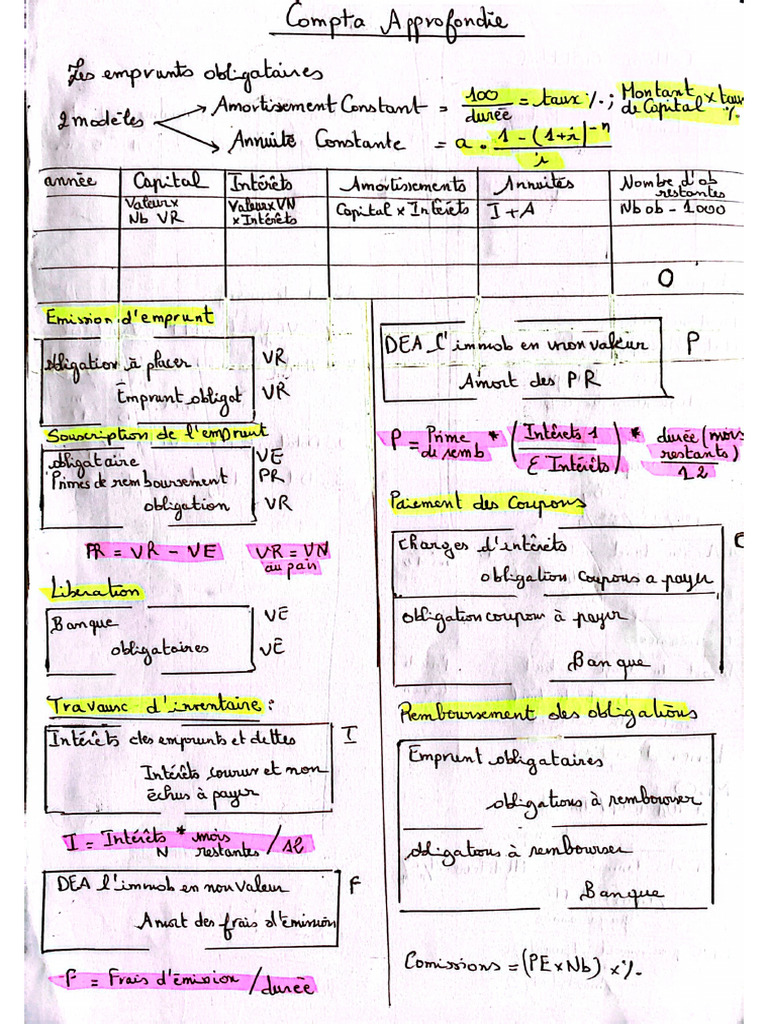 Compta Approfondie
Les emprunts obligataires
2 modèles
Amortissement Constant = 100 / durée = taux %. ; Montant de Capital x taux %.
Annuité Constante = a . 1 - (1+i)^-n / i
année | Capital | Intérêts | Amortissements | Annuités | Nombre d'ob restantes
Valeur x Nb VR | Valeur x VN x Intérêts | Capital x Intérêts | I + A | Nb ob - 1000
0
Emission d'emprunt
obligation à placer VR
Emprunt obligat VR
Souscription de l'emprunt
obligataire VE
Primes de remboursement PR
obligation VR
PR = VR - VE
VR = VN
au pair
Liberation
Banque VE
obligataires VE
Travaux d'inventaire :
Intérêts des emprunts et dettes I
Intérêts courur et non
échus à payer
I = Intérêts N * mois restantes / 12
DEA l'immob en non valeur F
Amort des frais d'émission
F = Frais d'émission / durée
DEA l'immob en non valeur P
Amort des PR
P = Prime de remb * (Intérêts 1 / Σ Intérêts) * durée (mois restants) / 12
Paiement des Coupons
Charges d'intérêts C
obligation coupons a payer
obligation coupon à payer
Banque
Remboursement des obligations
Emprunt obligataires
obligations à rembourser
obligations à rembourser
Banque
Comissions = (PE x Nb) x %.